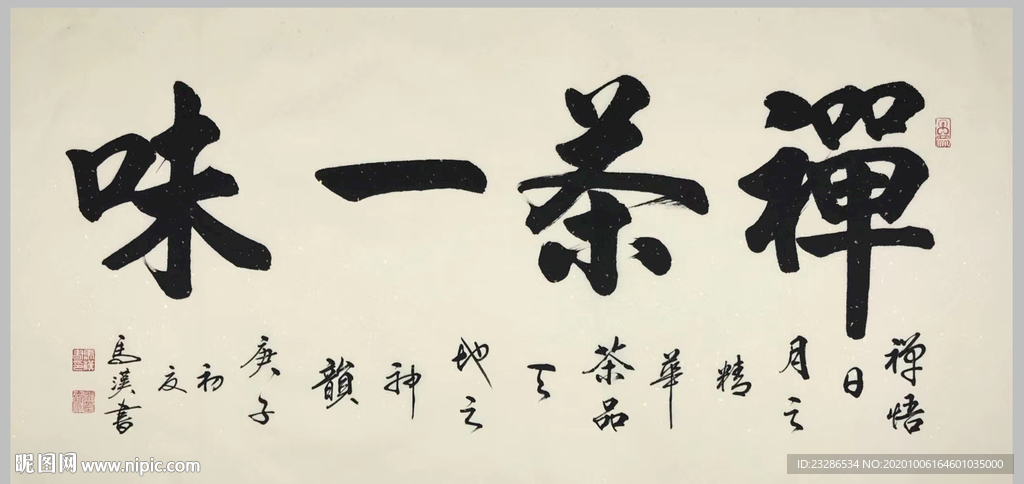 禪茶一味
禅悟
日
月之
精
華
茶品
天
地之
神
韻
庚子
初
夏
馬漢書
昵图网 www.nipic.com
ID:23286534 NO:20201006164601035000